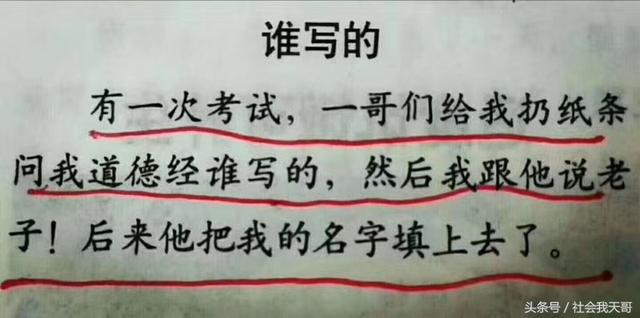 谁写的
有一次考试，一哥们给我扔纸条
问我道德经谁写的，然后我跟他说老
子！后来他把我的名字填上去了。
头条号／社会我天哥